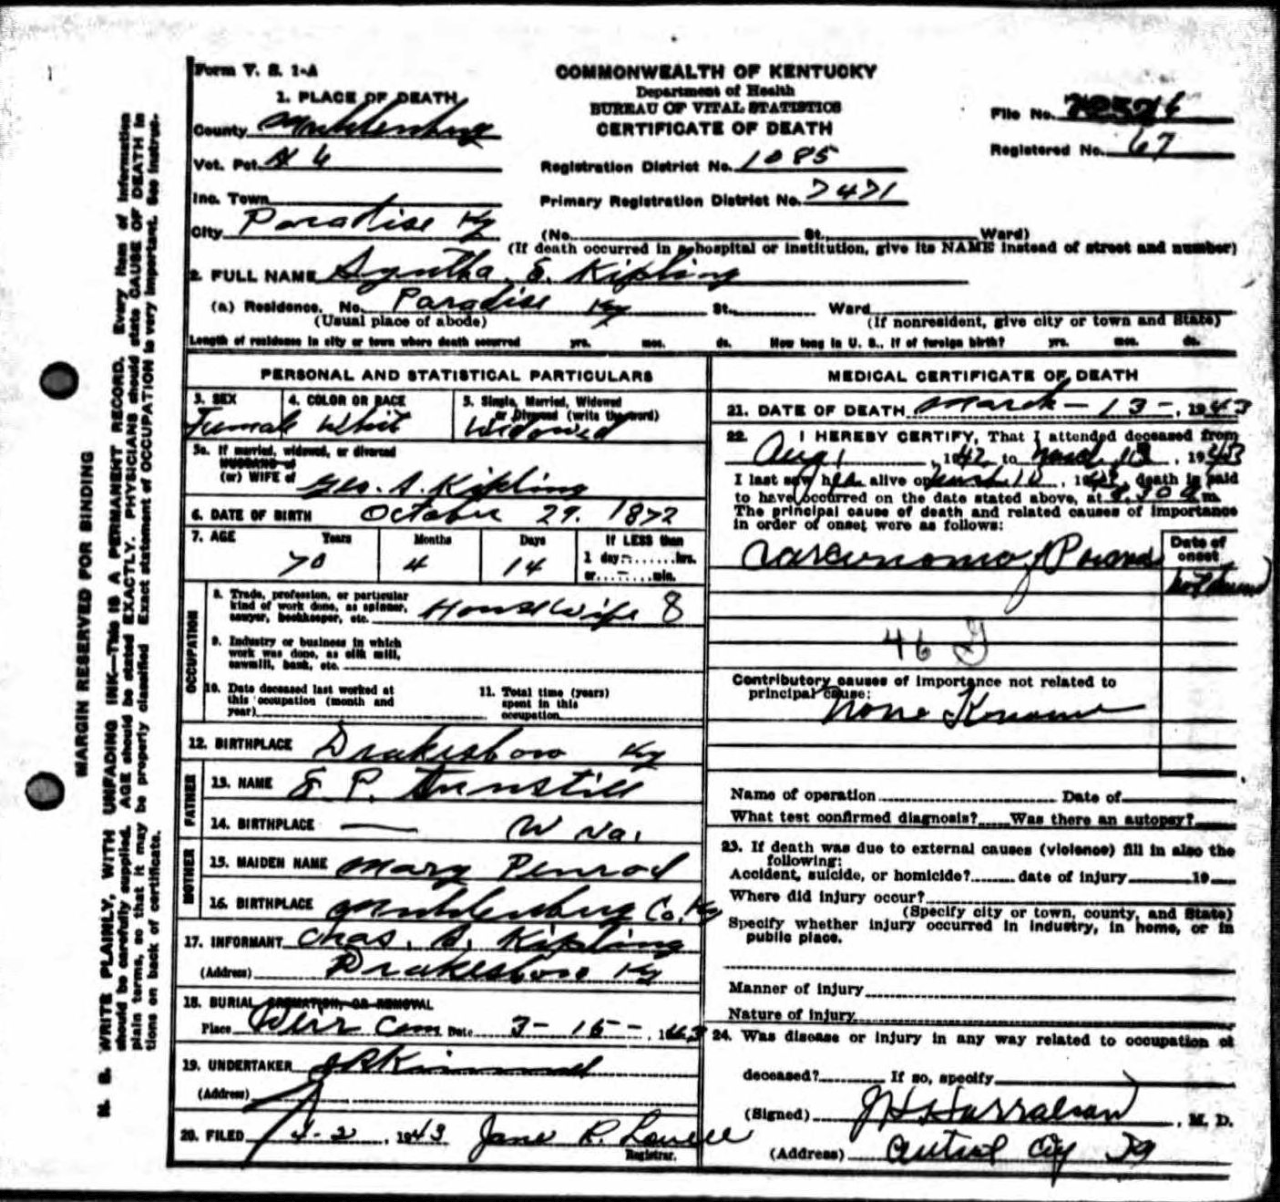 Form V. S. 1-A
COMMONWEALTH OF KENTUCKY
Department of Health
BUREAU OF VITAL STATISTICS
CERTIFICATE OF DEATH
File No.
Registered No. 67
1. PLACE OF DEATH
County Muhlenberg
Vot. Pct. # 6
Registration District No. 1085
Inc. Town
Primary Registration District No. 7471
City Paradise Ky
(No. St. Ward)
(If death occurred in a hospital or institution, give its NAME instead of street and number)
2. FULL NAME Syntha E. Kipling
(a) Residence. No. Paradise Ky St. Ward
(Usual place of abode) (If nonresident, give city or town and State)
Length of residence in city or town where death occurred yrs. mos. ds. How long in U. S., if of foreign birth? yrs. mos. ds.
PERSONAL AND STATISTICAL PARTICULARS
3. SEX Female
4. COLOR OR RACE White
5. Single, Married, Widowed
or Divorced (write the word)
Widowed
5a. If married, widowed, or divorced
HUSBAND of
(or) WIFE of Geo. A. Kipling
6. DATE OF BIRTH October 29. 1872
7. AGE Years Months Days If LESS than
1 day, hrs.
70 4 14 or min.
OCCUPATION
8. Trade, profession, or particular
kind of work done, as spinner,
sawyer, bookkeeper, etc. Housewife 8
9. Industry or business in which
work was done, as silk mill,
sawmill, bank, etc.
10. Date deceased last worked at
this occupation (month and
year)
11. Total time (years)
spent in this
occupation
12. BIRTHPLACE Drakesboro Ky
FATHER
13. NAME E P.
14. BIRTHPLACE — W Va.
MOTHER
15. MAIDEN NAME Mary Penrod
16. BIRTHPLACE Muhlenberg Co. Ky
17. INFORMANT Chas. A. Kipling
(Address) Drakesboro Ky
18. BURIAL, CREMATION, OR REMOVAL
Place Weir Cem Date 3-15-, 1943
19. UNDERTAKER
(Address)
20. FILED 4-2, 1943 Jane R.
Registrar.
MEDICAL CERTIFICATE OF DEATH
21. DATE OF DEATH March - 13 -, 1943
22. I HEREBY CERTIFY, That I attended deceased from
Aug 1, 1942 to March 13, 1943
I last saw her alive on March 10, 1943, death is said
to have occurred on the date stated above, at 8.30 a m.
The principal cause of death and related causes of importance
in order of onset were as follows:
Date of
onset
Carcinoma of
46
Contributory causes of importance not related to
principal cause:
None Known
Name of operation Date of
What test confirmed diagnosis? Was there an autopsy?
23. If death was due to external causes (violence) fill in also the
following:
Accident, suicide, or homicide? date of injury 19
Where did injury occur?
(Specify city or town, county, and State)
Specify whether injury occurred in industry, in home, or in
public place.
Manner of injury
Nature of injury
24. Was disease or injury in any way related to occupation of
deceased? If so, specify
(Signed) J H Harralson, M. D.
(Address) Central City Ky
MARGIN RESERVED FOR BINDING
N. B. WRITE PLAINLY, WITH UNFADING INK—THIS IS A PERMANENT RECORD. Every item of information
should be carefully supplied. AGE should be stated EXACTLY. PHYSICIANS should state CAUSE OF DEATH in
plain terms, so that it may be properly classified. Exact statement of OCCUPATION is very important. See instructions
on back of certificate.